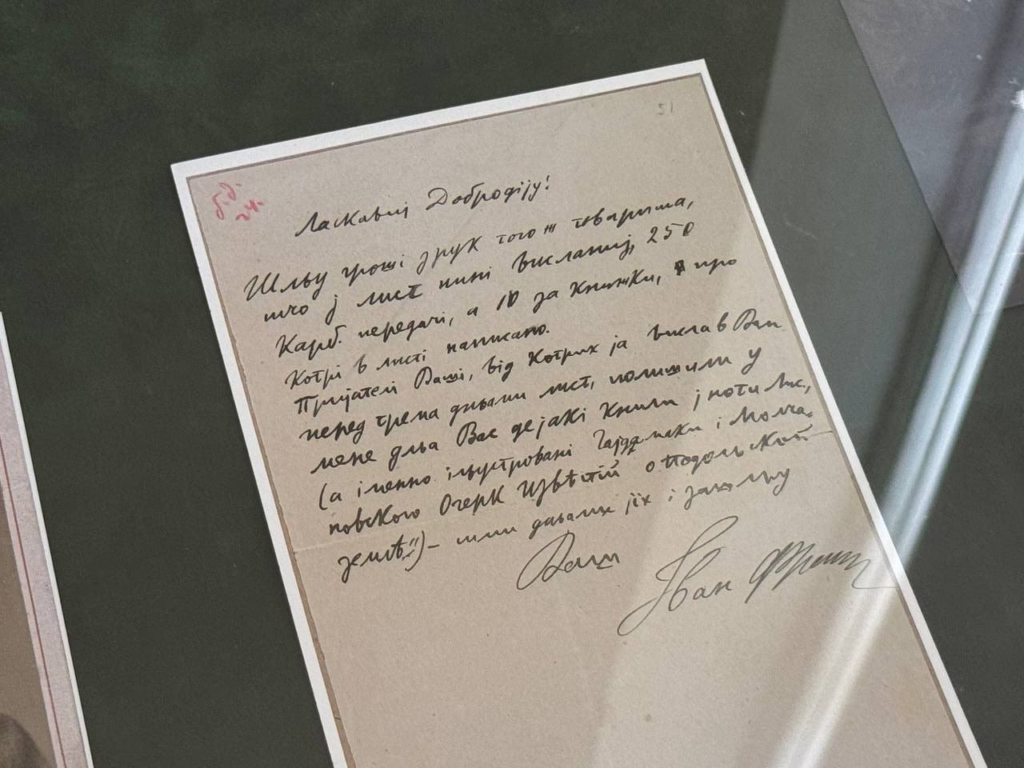 51
24.
Ласкавиј Добродіју!
Шльу гроші друк того ж товариша,
шчо ј лист нині висланиј, 250
Карб. передачі, а 10 за книжки, про
котрі в листі написано.
Пријателі Ваші, від котрих ја вислав Вам
перед трема дньами лист, полишили у
мене дльа Вас дејакі книги ј ноти Лис,
(а іменно ільустровані Гајдамаки і Молча-
новского Очерк извѣстій о Подольской
землѣ") – ми дньами јіх і зашльу
Ваш
Іван Франко